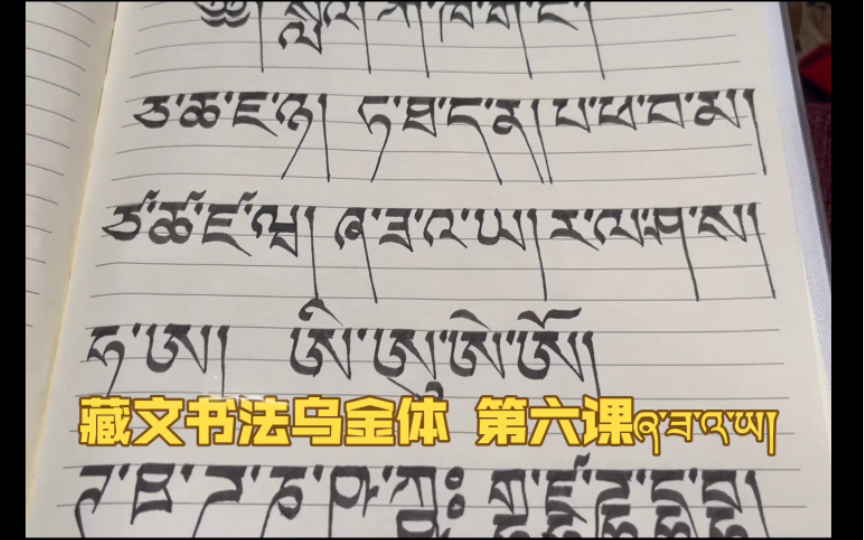 ཀ་ཁ་ག་ང་།
ཅ་ཆ་ཇ་ཉ། ཏ་ཐ་ད་ན། པ་ཕ་བ་མ།
ཙ་ཚ་ཛ་ཝ། ཞ་ཟ་འ་ཡ། ར་ལ་ཤ་ས།
ཧ་ཨ། ཨི་ཨུ་ཨེ་ཨོ།
藏文书法乌金体 第六课ཞ་ཟ་འ་ཡ།
ཊ་ཋ་ཌ་ཎ་ཥ་ཀྵ༔ གྷ་ཛྷ་ཌྷ་དྷ་བྷ།